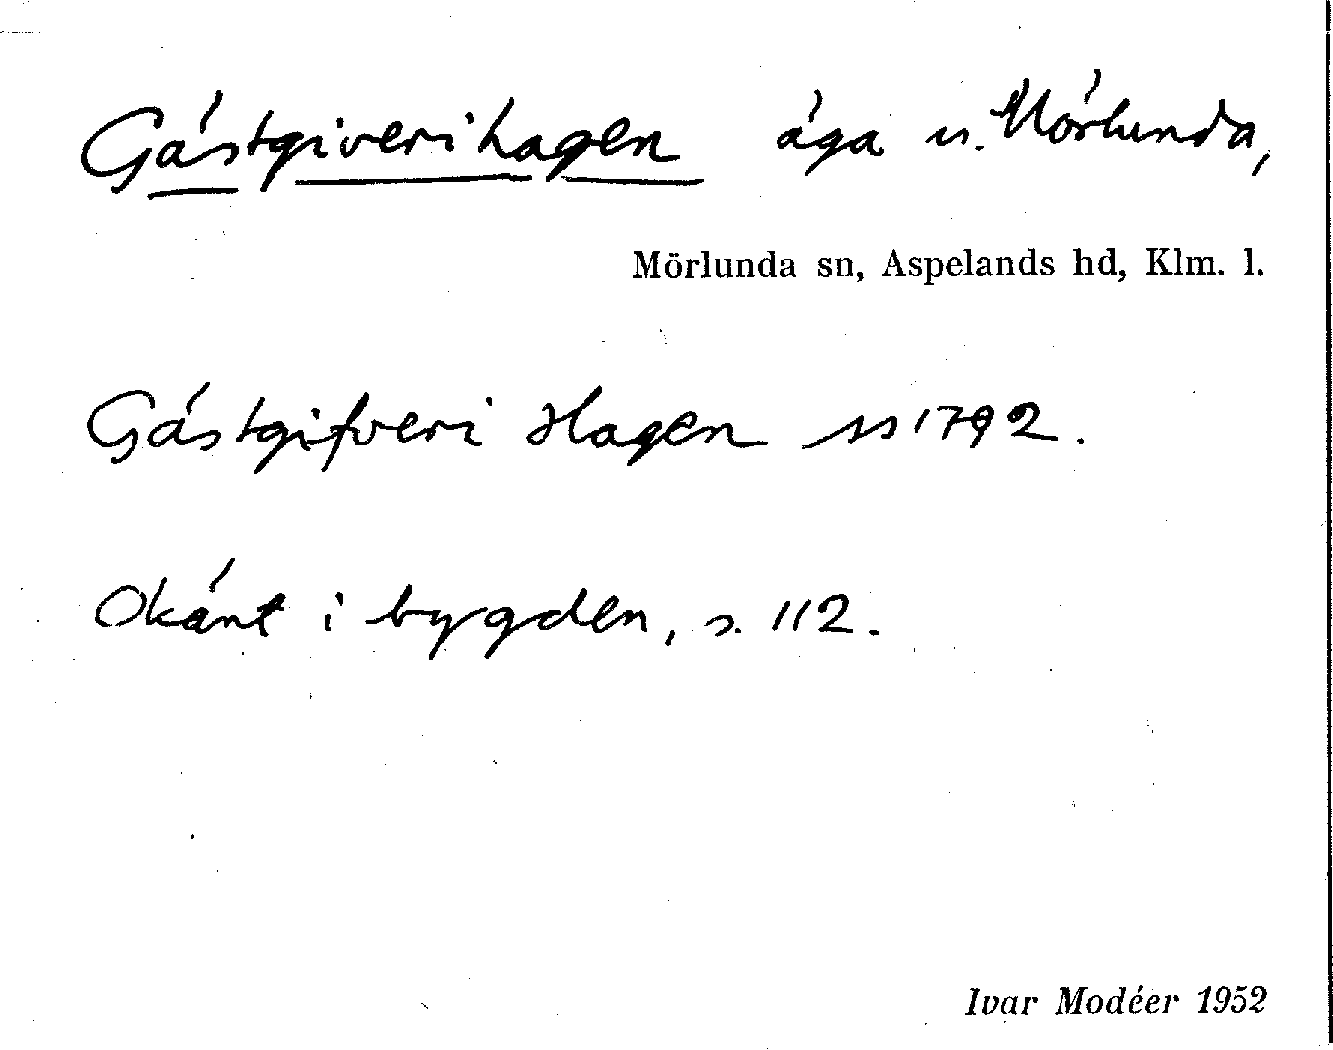 Gästgiverihagen äga u. Mörlunda,
Mörlunda sn, Aspelands hd, Klm. l.
Gästgifveri Hagen ss 1792.
Okänt i bygden, s. 112.
Ivar Modéer 1952